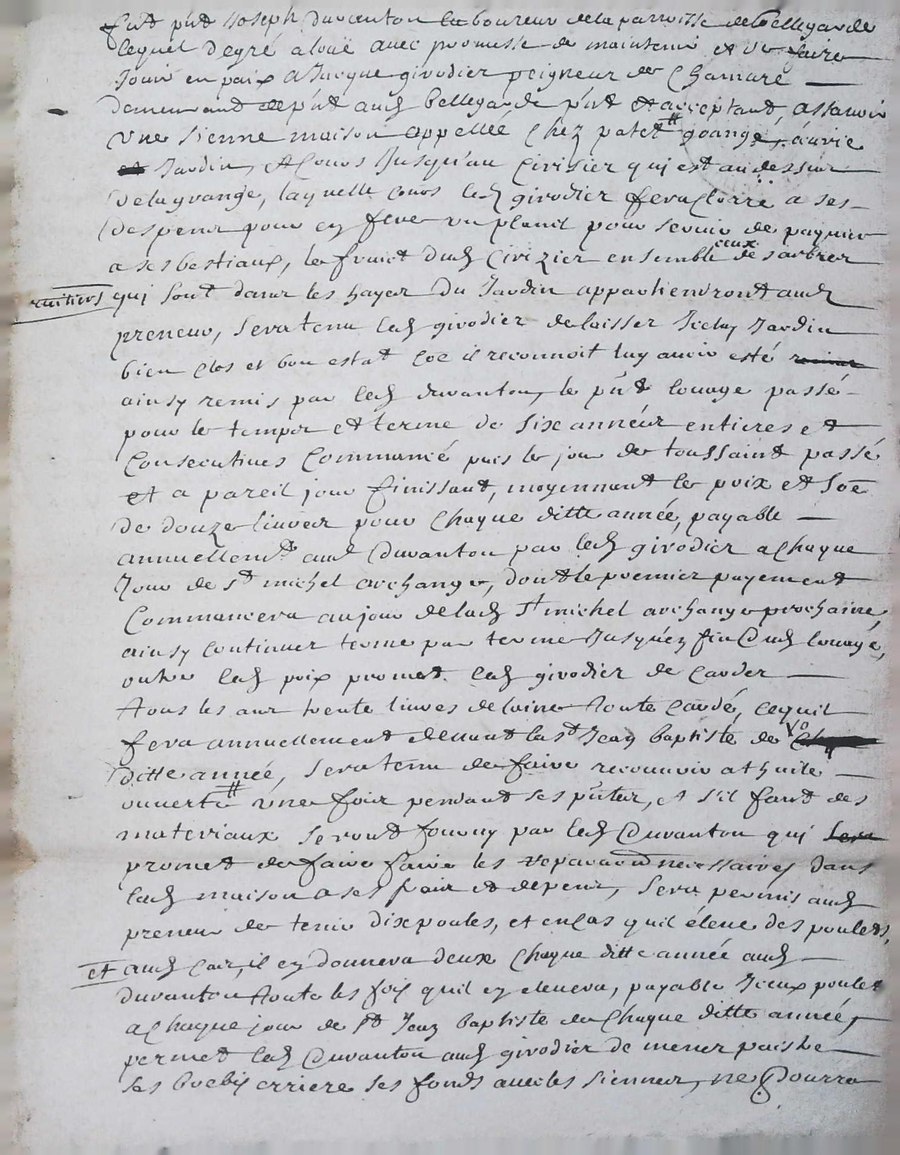 fut pñt Joseph Duvanton laboureur de la parroisse de Bellegarde
lequel degré a loüé avec promesse de maintenir et de faire
Jouir en paix a Jacque givodier peigneur de Chanvre
demeurant aud Bellegarde pñt et acceptant, assavoir
Une sienne maison appellée Chez patet grange, écurie
et Jardin, et Cours Jusqu'au Cirisier qui est au dessur
de la grange, laquelle Cours led givodier fera Clorre a ses
despens pour en faire un plenil pour servir de paquier
a ses bestiaux, le fruict dud Cirizier ensemble ceux des arbres
ruitiers qui sont dans les hayes du Jardin appartiendront aud
preneur, sera tenu led givodier de laisser Iceluy Jardin
bien clos et bon estat Coe il reconnoit luy avoir esté
ainsy remis par led duvanton, le pñt louage passé
pour le temps et terme de six années entieres et
Consecutives Commancé puis le jour de toussaint passé
et a pareil jour finissant, moyennant le prix et soe
de douze livres pour Chaque ditte année, payable
annuellemt aud Duvanton par led givodier a Chaque
Jour de st michel archange, dont le premier payement
Commancera au jour de lad St michel archange prochaine,
ainsy continuer terme par terme Jusqu'en fin dud louage,
outre led prix promet led givodier de Carder
tous les ans trente livres de laine toute cardé, ce quil
fera annuellement devant la st Jean baptiste de
ditte année, sera tenu de faire recouvrir a thuile
ouverte une fois pendant ses pñtes, et s'il faut des
materiaux seront fourny par led Duvanton qui sera
promet de faire faire les reparaõns necessaires dans
lad maison a ses frais et depens, sera permis aud
preneur de tenir dix poules, et en cas quil eleve des poulets,
et aud cas, il en donnera deux Chaque ditte année aud
duvanton toute les fois quil en elevera, payable Iceux poulet
a Chaque jour de st Jean baptiste de Chaque ditte année,
permet led Duvanton aud givodier de mener paistre
ses brebis erriere ses fonds avec les siennes, ne pourra